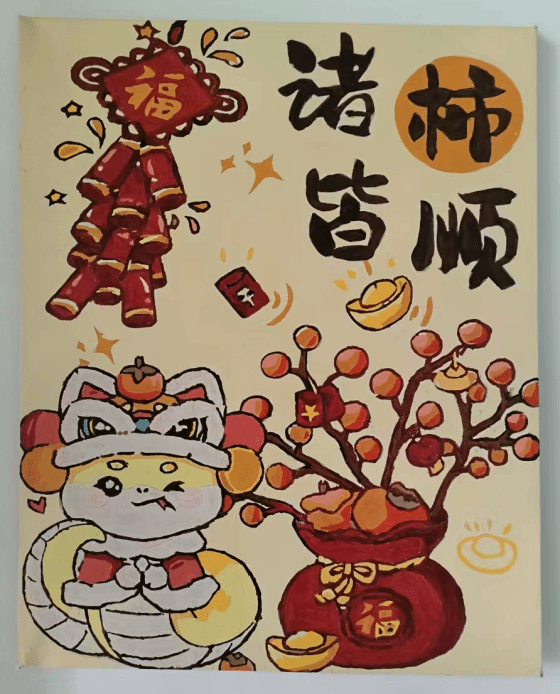 福
诸柿
皆顺
福